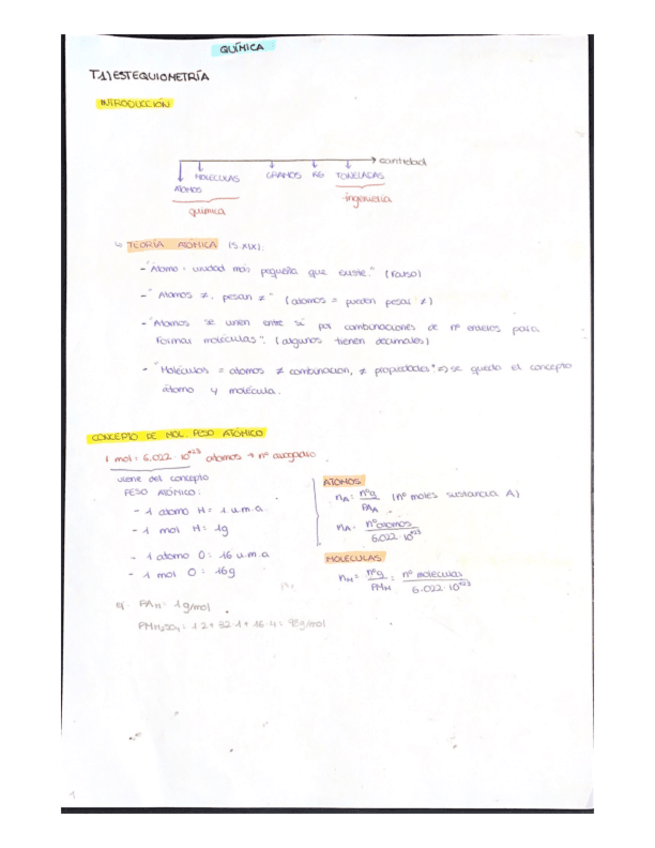 QUÍMICA
T.1) ESTEQUIOMETRÍA
INTRODUCCIÓN
→ cantidad
MOLECULAS GRAMOS KG TONELADAS
ATOMOS
química ingeniería
↳ TEORÍA ATÓMICA (S.XIX):
- "Átomo = unidad más pequeña que existe." (Falso)
- "Átomos ≠, pesan ≠" (átomos = pueden pesar ≠)
- "Átomos se unen entre sí por combinaciones de nº enteros para
formar moléculas". (algunos tienen decimales)
- "Moléculas = átomos ≠ combinación, ≠ propiedades" => se quedó el concepto
átomo y molécula.
CONCEPTO DE MOL. PESO ATÓMICO
1 mol = 6.022·10^+23 átomos → nº avogadro
viene del concepto
PESO ATÓMICO:
- 1 átomo H = 1 u.m.a.
- 1 mol H = 1g
- 1 átomo O = 16 u.m.a
- 1 mol O = 16g
ej. PA_H = 1g/mol
PM_H2SO4 = 1·2 + 32·1 + 16·4 = 98g/mol
ÁTOMOS
n_A = nºg / PA_A (nº moles sustancia A)
n_A = nº átomos / 6.022·10^+23
MOLECULAS
n_M = nºg / PM_M = nº moléculas / 6.022·10^+23
1